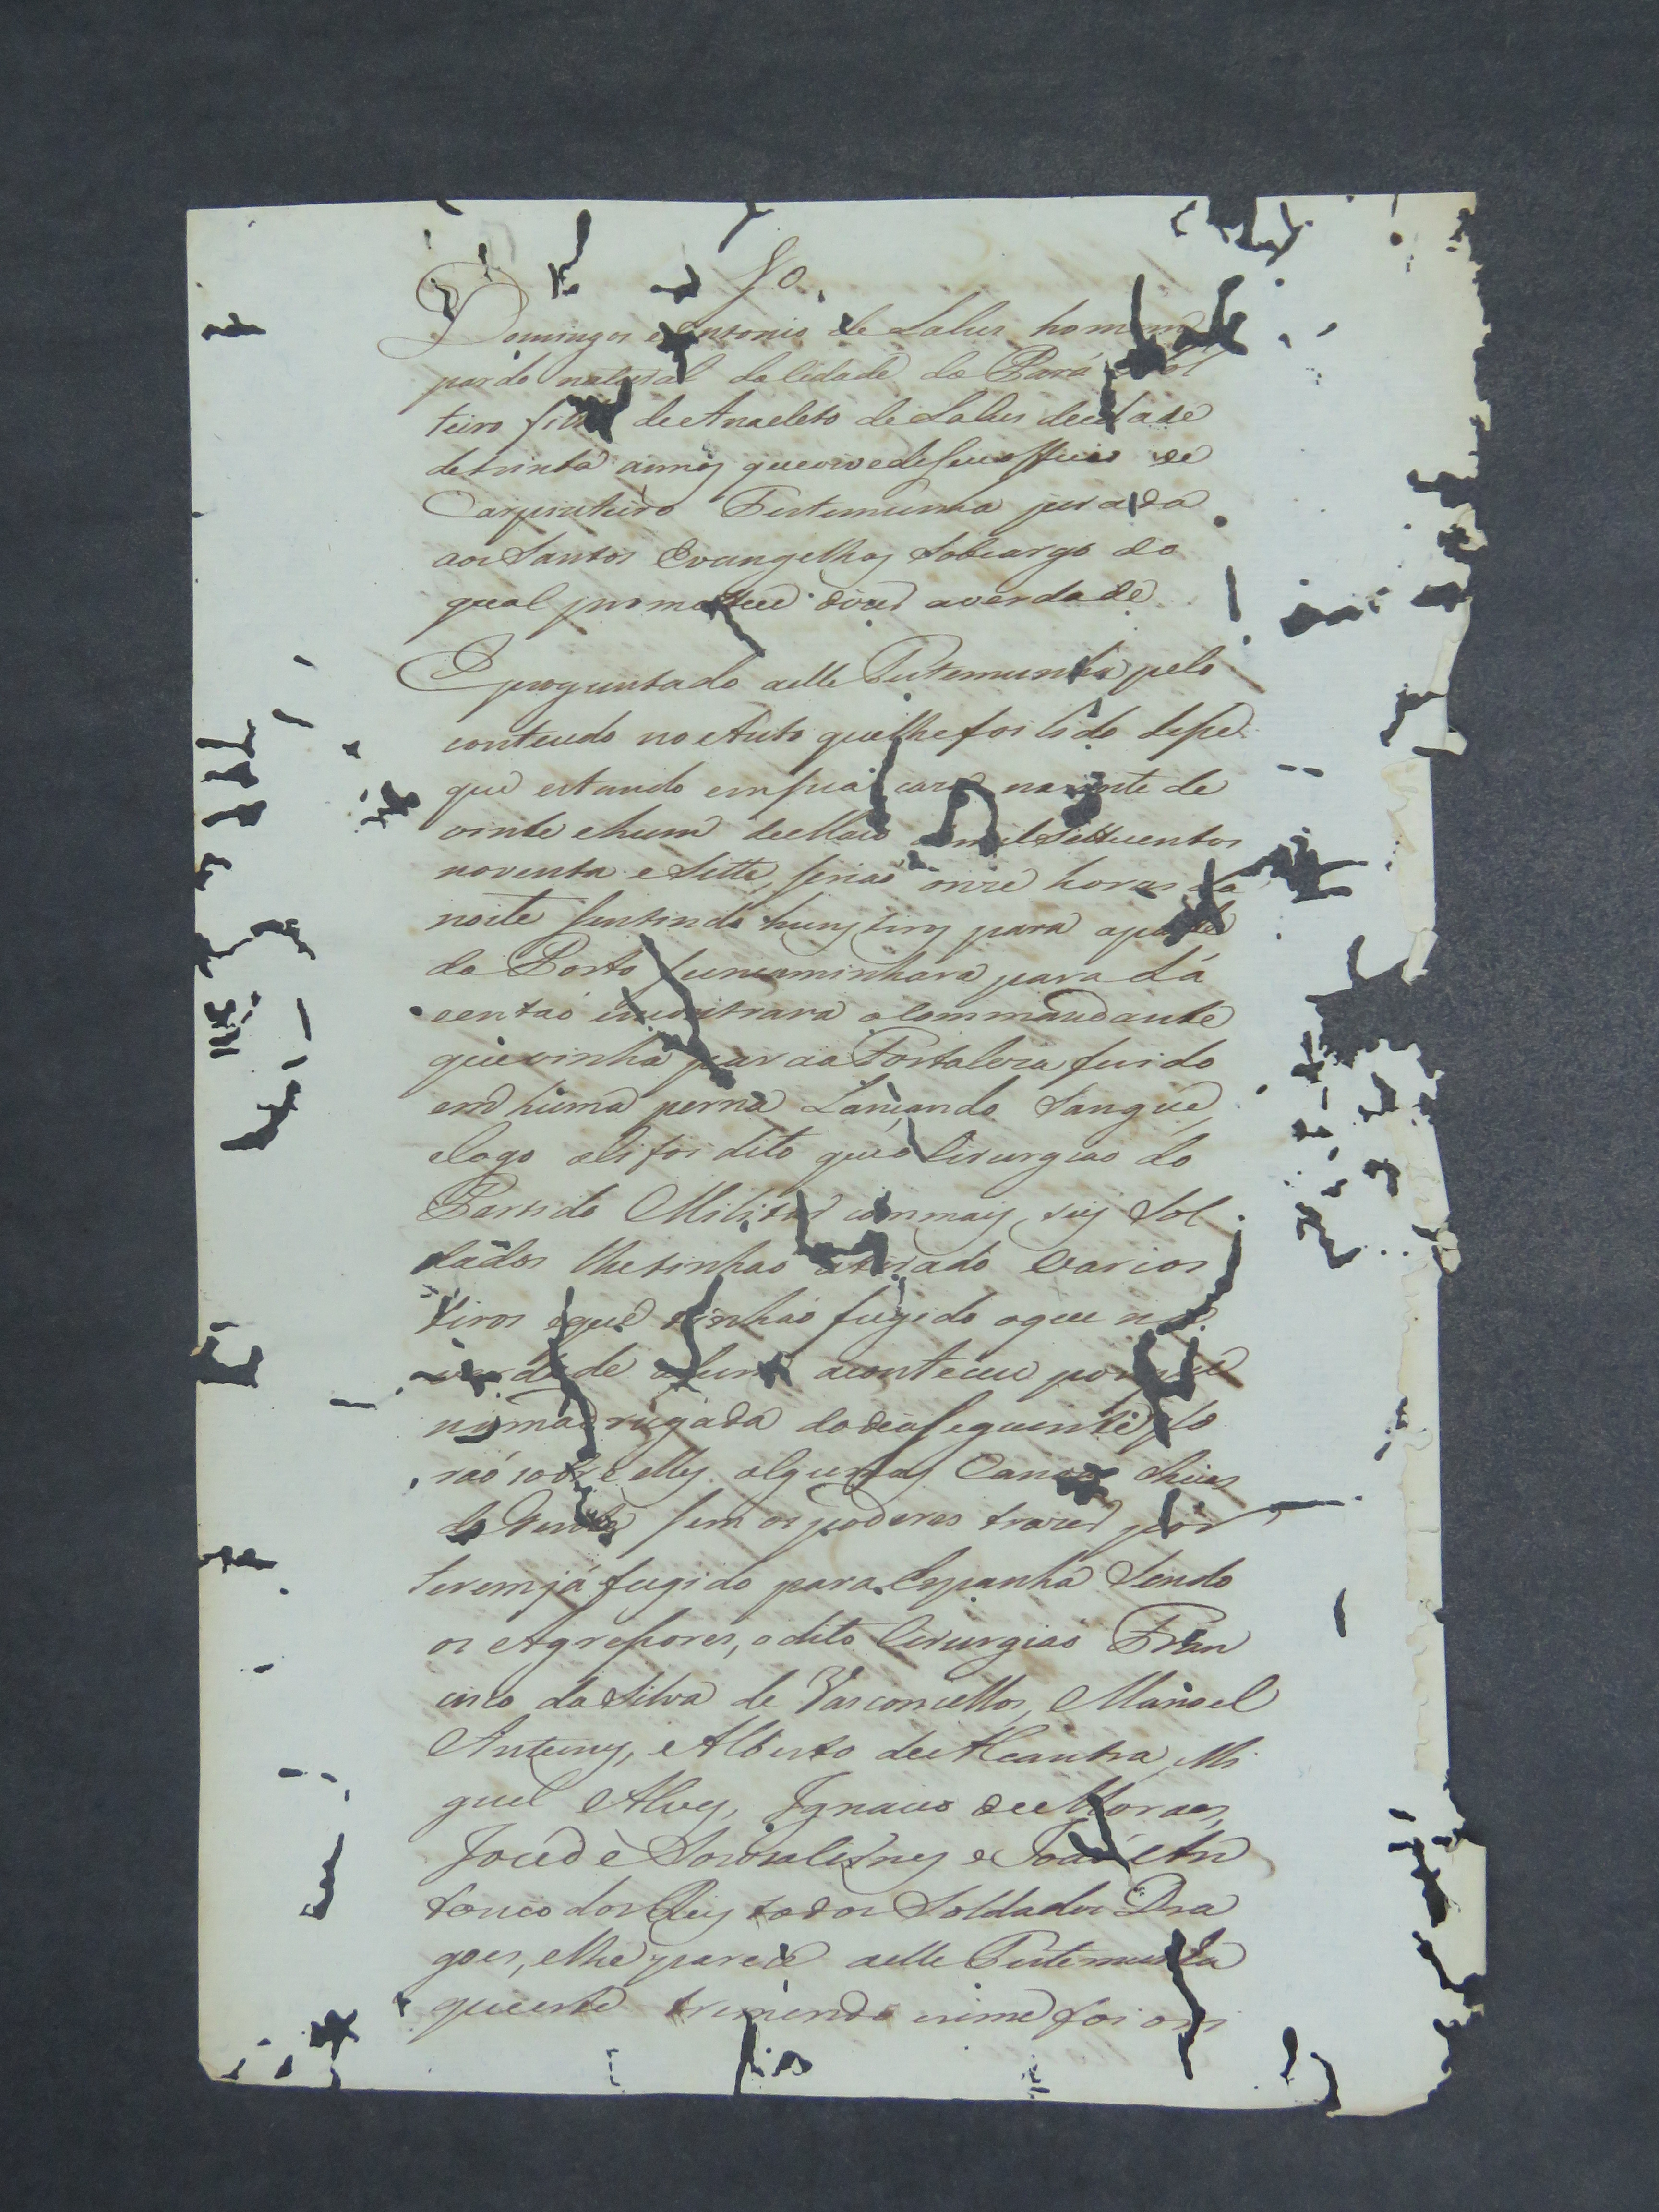 Domingos Antonio de Sales homem
pardo natural da Cidade do Pará Sol
teiro filho de Anacleto de Sales de idade
de trinta annos que vive de seu officio de
Carpinteiro Testemunha jurada
aos Santos Evangelhos sob cargo do
qual prometteu dizer a verdade
E proguntado a elle Testemunha pelo
conteudo no Auto que lhe foi lido disse
que estando em sua caza na noite de
vinte e hum de Maio mil Settecentos
noventa e Sette, seriaõ onze horas da
noite sentindo huns tiros para a parte
do Porto se encaminhara para Lá
e entaõ encontrara o Commandante
que vinha para a Fortaleza ferido
em huma perna Lançando Sangue,
e logo ali foi dito que o Cirurgiaõ do
Partido Militar com mais seis Sol
dados lhe tinhaõ atirado varios
tiros e que tinhaõ fugido o que na
verdade assim aconteceu porque
na madrugada do dia seguinte fo
raõ sobre elles algumas Canoas cheias
de Gente sem os poderes trazer por
terem já fugido para Espanha Sendo
os Agressores, o dito Cirurgiaõ Fran
cisco da Silva de Vasconcellos, Manoel
Antunes, Alberto de Alcantra, Mi
guel Alves, Ignacio de Moraes,
Joze de e João An
tonio dos Reis todos Soldados Dra
goes, e lhe parece a elle Testemunha
que este tremendo crime foi ori